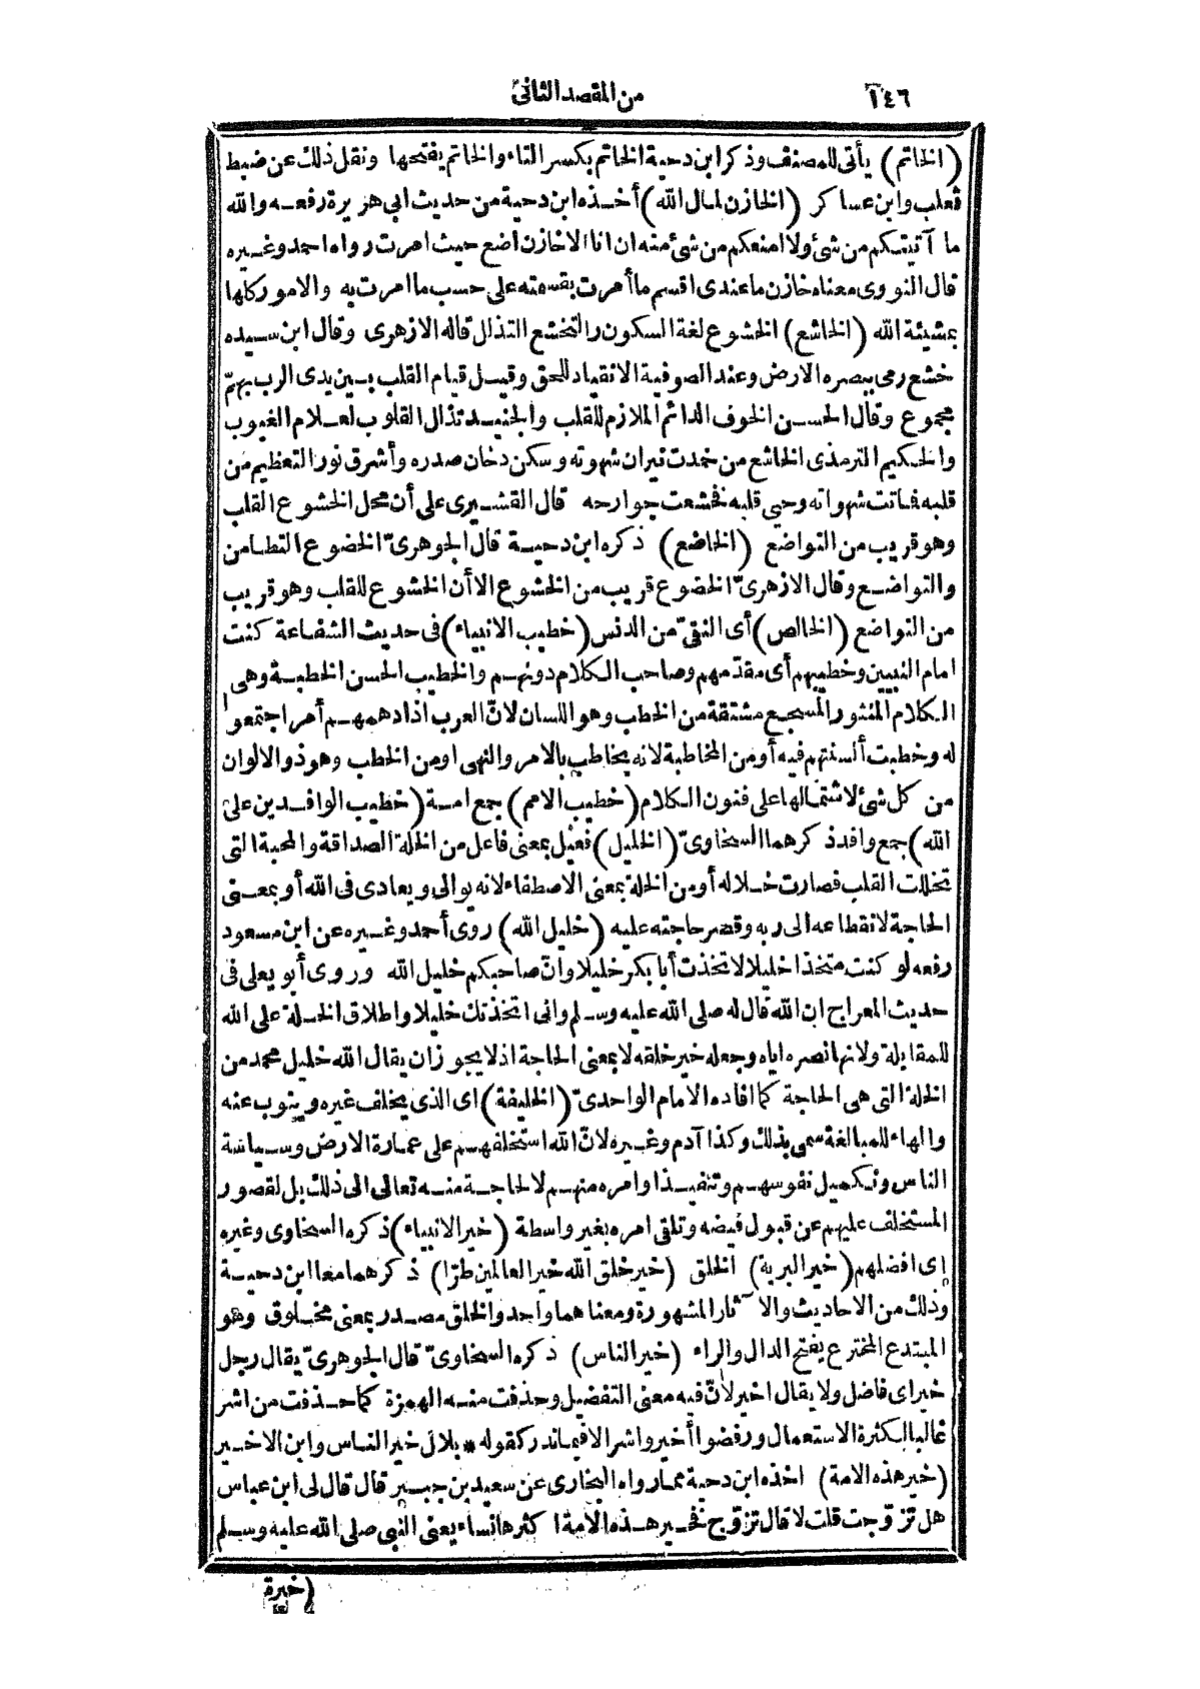 ١٤٦ من المقصد الثانى
(الخاتم) يأتى للمصنف وذكر ابن دحية الخاتم بكسر التاء والخاتم بفتحها ونقل ذلك عن ضبط
ثعلب وابن عساكر (الخازن لمال الله) أخذه ابن دحية من حديث ابى هريرة رفعه والله
ما آتيتكم من شئ ولا امنعكم من شئ منه ان انا الا خازن اضع حيث امرت رواه احمد وغيره
قال النووى معناه خازن ما عندى اقسم ما أمرت بقسمته على حسب ما امرت به والامور كلها
بمشيئة الله (الخاشع) الخشوع لغة السكون والتخشع التذلل قاله الازهرى وقال ابن سيده
خشع رمى ببصره الارض وعند الصوفية الانقياد للحق وقيل قيام القلب بين يدى الرب بهمّ
مجموع وقال الحسن الخوف الدائم الملازم للقلب والجنيد تذلل القلوب لعلام الغيوب
والحكيم الترمذى الخاشع من خمدت نيران شهوته وسكن دخان صدره وأشرق نور التعظيم من
قلبه فماتت شهواته وحيى قلبه فخشعت جوارحه قال القشيرى على أن محل الخشوع القلب
وهو قريب من التواضع (الخاضع) ذكره ابن دحية قال الجوهرىّ الخضوع التطامن
والتواضع وقال الازهرىّ الخضوع قريب من الخشوع الا أن الخشوع للقلب وهو قريب
من التواضع (الخالص) أى النقىّ من الدنس (خطيب الانبياء) فى حديث الشفاعة كنت
امام النبيين وخطيبهم أى مقدّمهم وصاحب الكلام دونهم والخطيب الحسن الخطبة وهى
الكلام المنثور المسجع مشتقة من الخطب وهو اللسان لانّ العرب اذا دهمهم أمر اجتمعوا
له وخطبت ألسنتهم فيه أو من المخاطبة لانه يخاطب بالامر والنهى او من الخطب وهو ذو الالوان
من كل شئ لاشتمالها على فنون الكلام (خطيب الامم) جمع امة (خطيب الوافدين على
الله) جمع وافد ذكرهما السخاوىّ (الخليل) فعيل بمعنى فاعل من الخلة الصداقة والمحبة التى
تخللت القلب فصارت خلاله أو من الخلة بمعنى الاصطفاء لانه يوالى ويعادى فى الله أو بمعنى
الحاجة لانقطاعه الى ربه وقصر حاجته عليه (خليل الله) روى أحمد وغيره عن ابن مسعود
رفعه لو كنت متخذا خليلا لاتخذت أبا بكر خليلا وانّ صاحبكم خليل الله وروى أبو يعلى فى
حديث المعراج ان الله قال له صلى الله عليه وسلم وانى اتخذتك خليلا واطلاق الخلة على الله
للمقابلة ولانها نصره اياه وجعله خير خلقه لا بمعنى الحاجة اذ لا يجوز ان يقال الله خليل محمد من
الخلة التى هى الحاجة كما افاده الامام الواحدىّ (الخليفة) اى الذى يخلف غيره وينوب عنه
والهاء للمبالغة سمى بذلك وكذا آدم وغيره لانّ الله استخلفهم على عمارة الارض وسياسة
الناس وتكميل نفوسهم وتنفيذ اوامره منهم لا لحاجة منه تعالى الى ذلك بل لقصور
المستخلف عليهم عن قبول فيضه وتلقى امره بغير واسطة (خير الانبياء) ذكره السخاوى وغيره
اى افضلهم (خير البرية) الخلق (خير خلق الله خير العالمين طرّا) ذكرهما معا ابن دحية
وذلك من الاحاديث والآثار المشهورة ومعناهما واحد والخلق مصدر بمعنى مخلوق وهو
المبتدع المخترع بفتح الدال والراء (خير الناس) ذكره السخاوىّ قال الجوهرىّ يقال رجل
خير اى فاضل ولا يقال اخير لانّ فيه معنى التفضيل وحذفت منه الهمزة كما حذفت من اشر
غالبا لكثرة الاستعمال ورفضوا أخير واشر الا فيما ندر كقوله * بلال خير الناس وابن الاخير
(خير هذه الامة) اخذه ابن دحية مما رواه البخارى عن سعيد بن جبير قال قال لى ابن عباس
هل تزوّجت قلت لا قال تزوّج فخير هذه الامة اكثرها نساء يعنى النبى صلى الله عليه وسلم
(خيرة